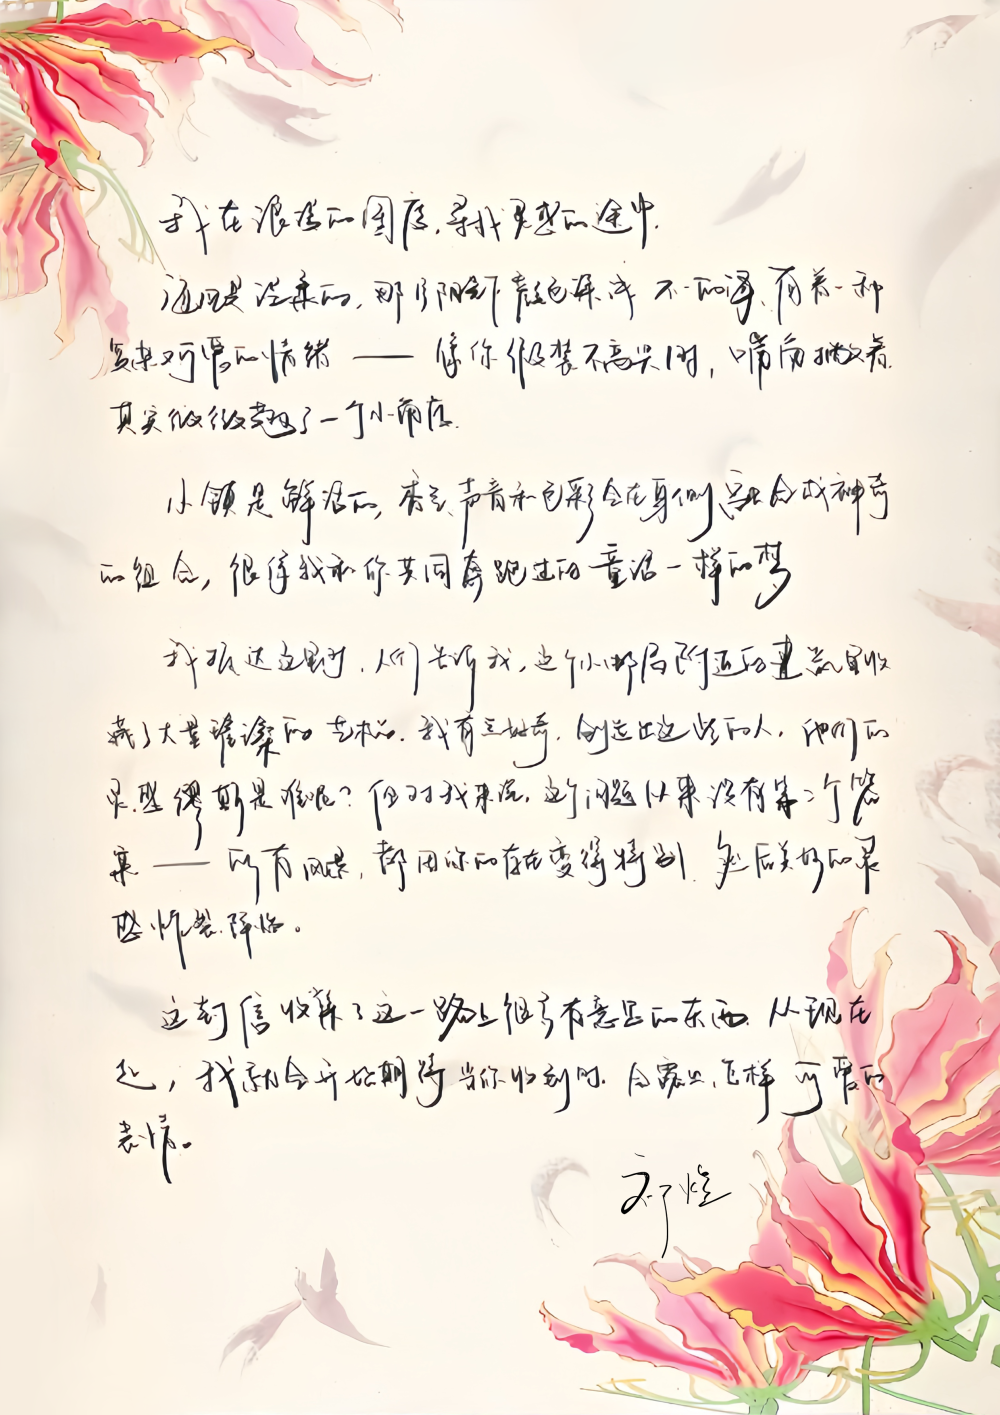 我在浪漫的国度,寻找灵感的途中.
这里是泼柔的,那片阴影下颜色深浅不一的海,有着一种
复杂可爱的情绪——像你假装不高兴时,嘴角撇着.
其实微微翘了一个小角度.
小镇是鲜活的,香气、声音和色彩会在身侧融合成神奇
的组合,很像我和你共同奔跑过的童话一样的梦
我抵达这里时,人们告诉我,这个小邮局附近的建筑里收
藏了大量璀璨的艺术品.我有些好奇,创造出这些的人,他们的
灵感缪斯是谁呢?但对我来说,这个问题从来没有第二个答
案——所有风景,都因你的存在变得特别,然后美好的灵
感炸裂降临。
这封信收集了这一路上很多有意思的东西,从现在
起,我就会开始期待当你收到时,会露出怎样可爱的
表情。
祁煜